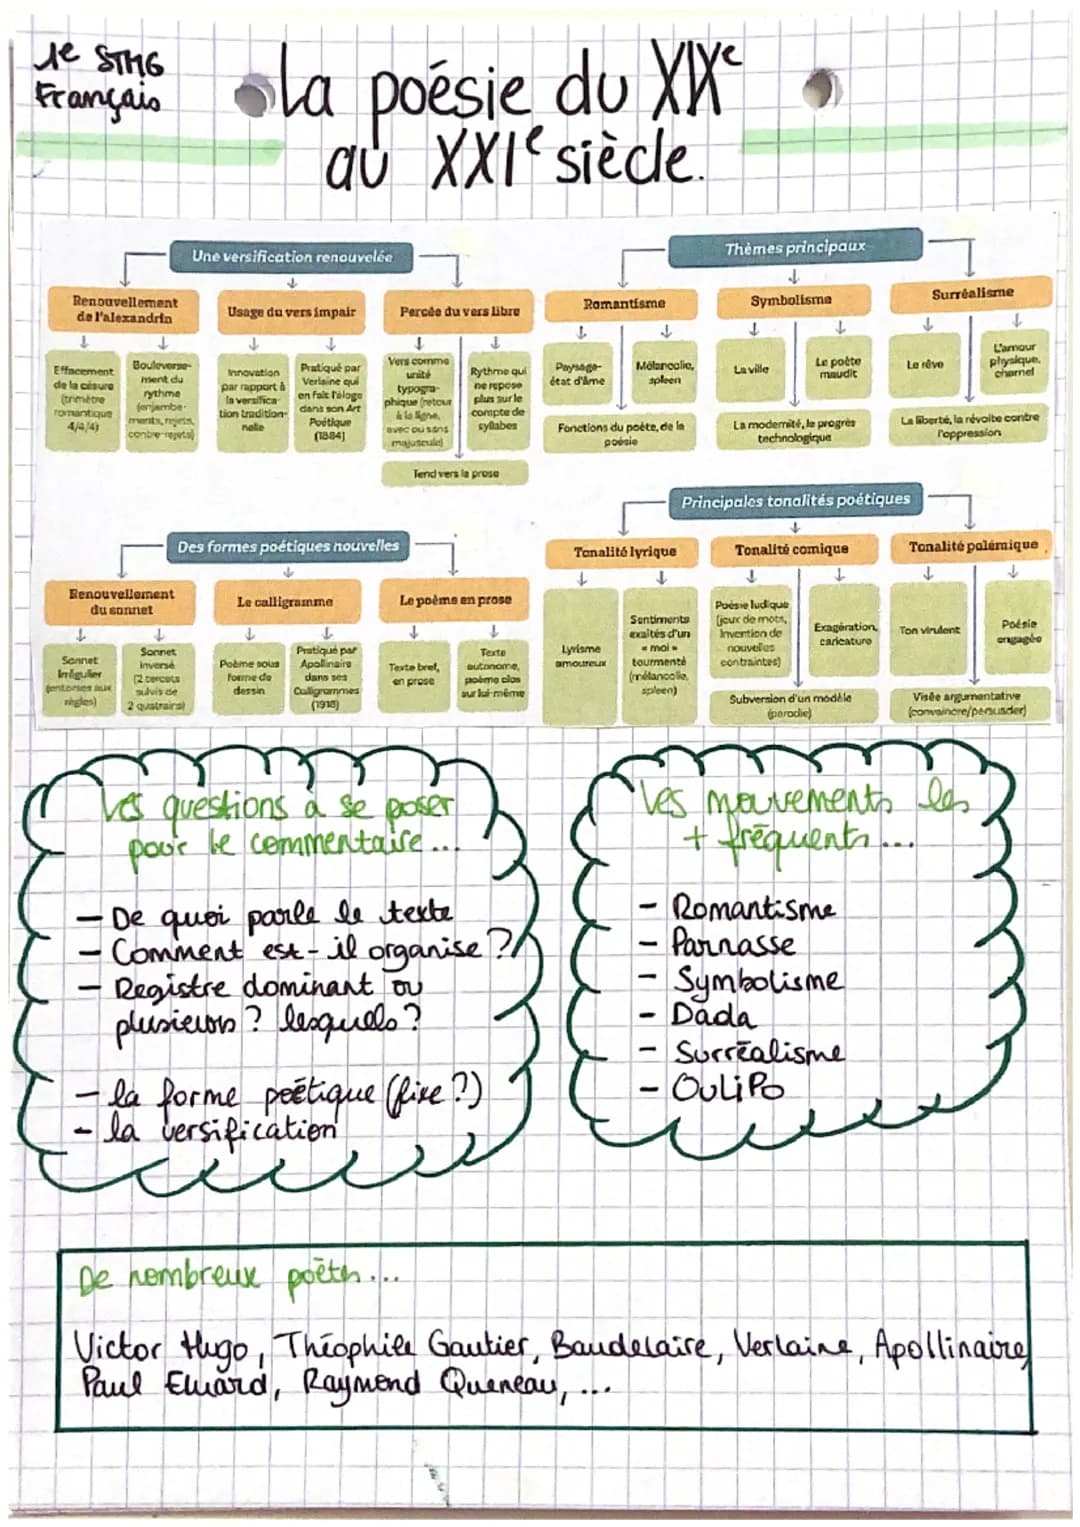 1e STMG
Français
La poésie du XIXe
au XXIe siècle.
Une versification renouvelée
Renouvellement
de l'alexandrin
Usage du vers impair
Percée du vers libre
Effacement
de la césure
(trimètre
romantique
4/4/4)
Bouleverse-
ment du
rythme
(enjambe-
ments, rejets,
contre-rejets)
Innovation
par rapport à
la versifica-
tion tradition-
nelle
Pratiqué par
Verlaine qui
en fait l'éloge
dans son Art
Poétique
(1884)
Vers comme
unité
typogra-
phique (retour
à la ligne,
avec ou sans
majuscule)
Rythme qui
ne repose
plus sur le
compte de
syllabes
Tend vers la prose
Thèmes principaux
Romantisme
Symbolisme
Surréalisme
Paysage-
état d'âme
Mélancolie,
spleen
Fonctions du poète, de la
poésie
La ville
Le poète
maudit
La modernité, le progrès
technologique
Le rêve
L'amour
physique,
charnel
La liberté, la révolte contre
l'oppression
Des formes poétiques nouvelles
Renouvellement
du sonnet
Le calligramme
Le poème en prose
Sonnet
irrégulier
(entorses aux
règles)
Sonnet
inversé
(2 tercets
suivis de
2 quatrains)
Poème sous
forme de
dessin
Pratiqué par
Apollinaire
dans ses
Calligrammes
(1918)
Texte bref,
en prose
Texte
autonome,
poème clos
sur lui-même
Principales tonalités poétiques
Tonalité lyrique
Tonalité comique
Tonalité polémique
Lyrisme
amoureux
Sentiments
exaltés d'un
« moi »
tourmenté
(mélancolie,
spleen)
Poésie ludique
(jeux de mots,
invention de
nouvelles
contraintes)
Exagération,
caricature
Subversion d'un modèle
(parodie)
Ton virulent
Poésie
engagée
Visée argumentative
(convaincre/persuader)
Les questions à se poser
pour le commentaire...
- De quoi parle le texte
- Comment est-il organise ?
- Registre dominant ou
plusieurs ? lesquels ?
- la forme poétique (fixe ?)
- la versification
Les mouvements les
+ fréquents...
- Romantisme
- Parnasse
- Symbolisme
- Dada
- Surréalisme
- OuLiPo
De nombreux poètes...
Victor Hugo, Théophile Gautier, Baudelaire, Verlaine, Apollinaire,
Paul Eluard, Raymond Queneau, ...